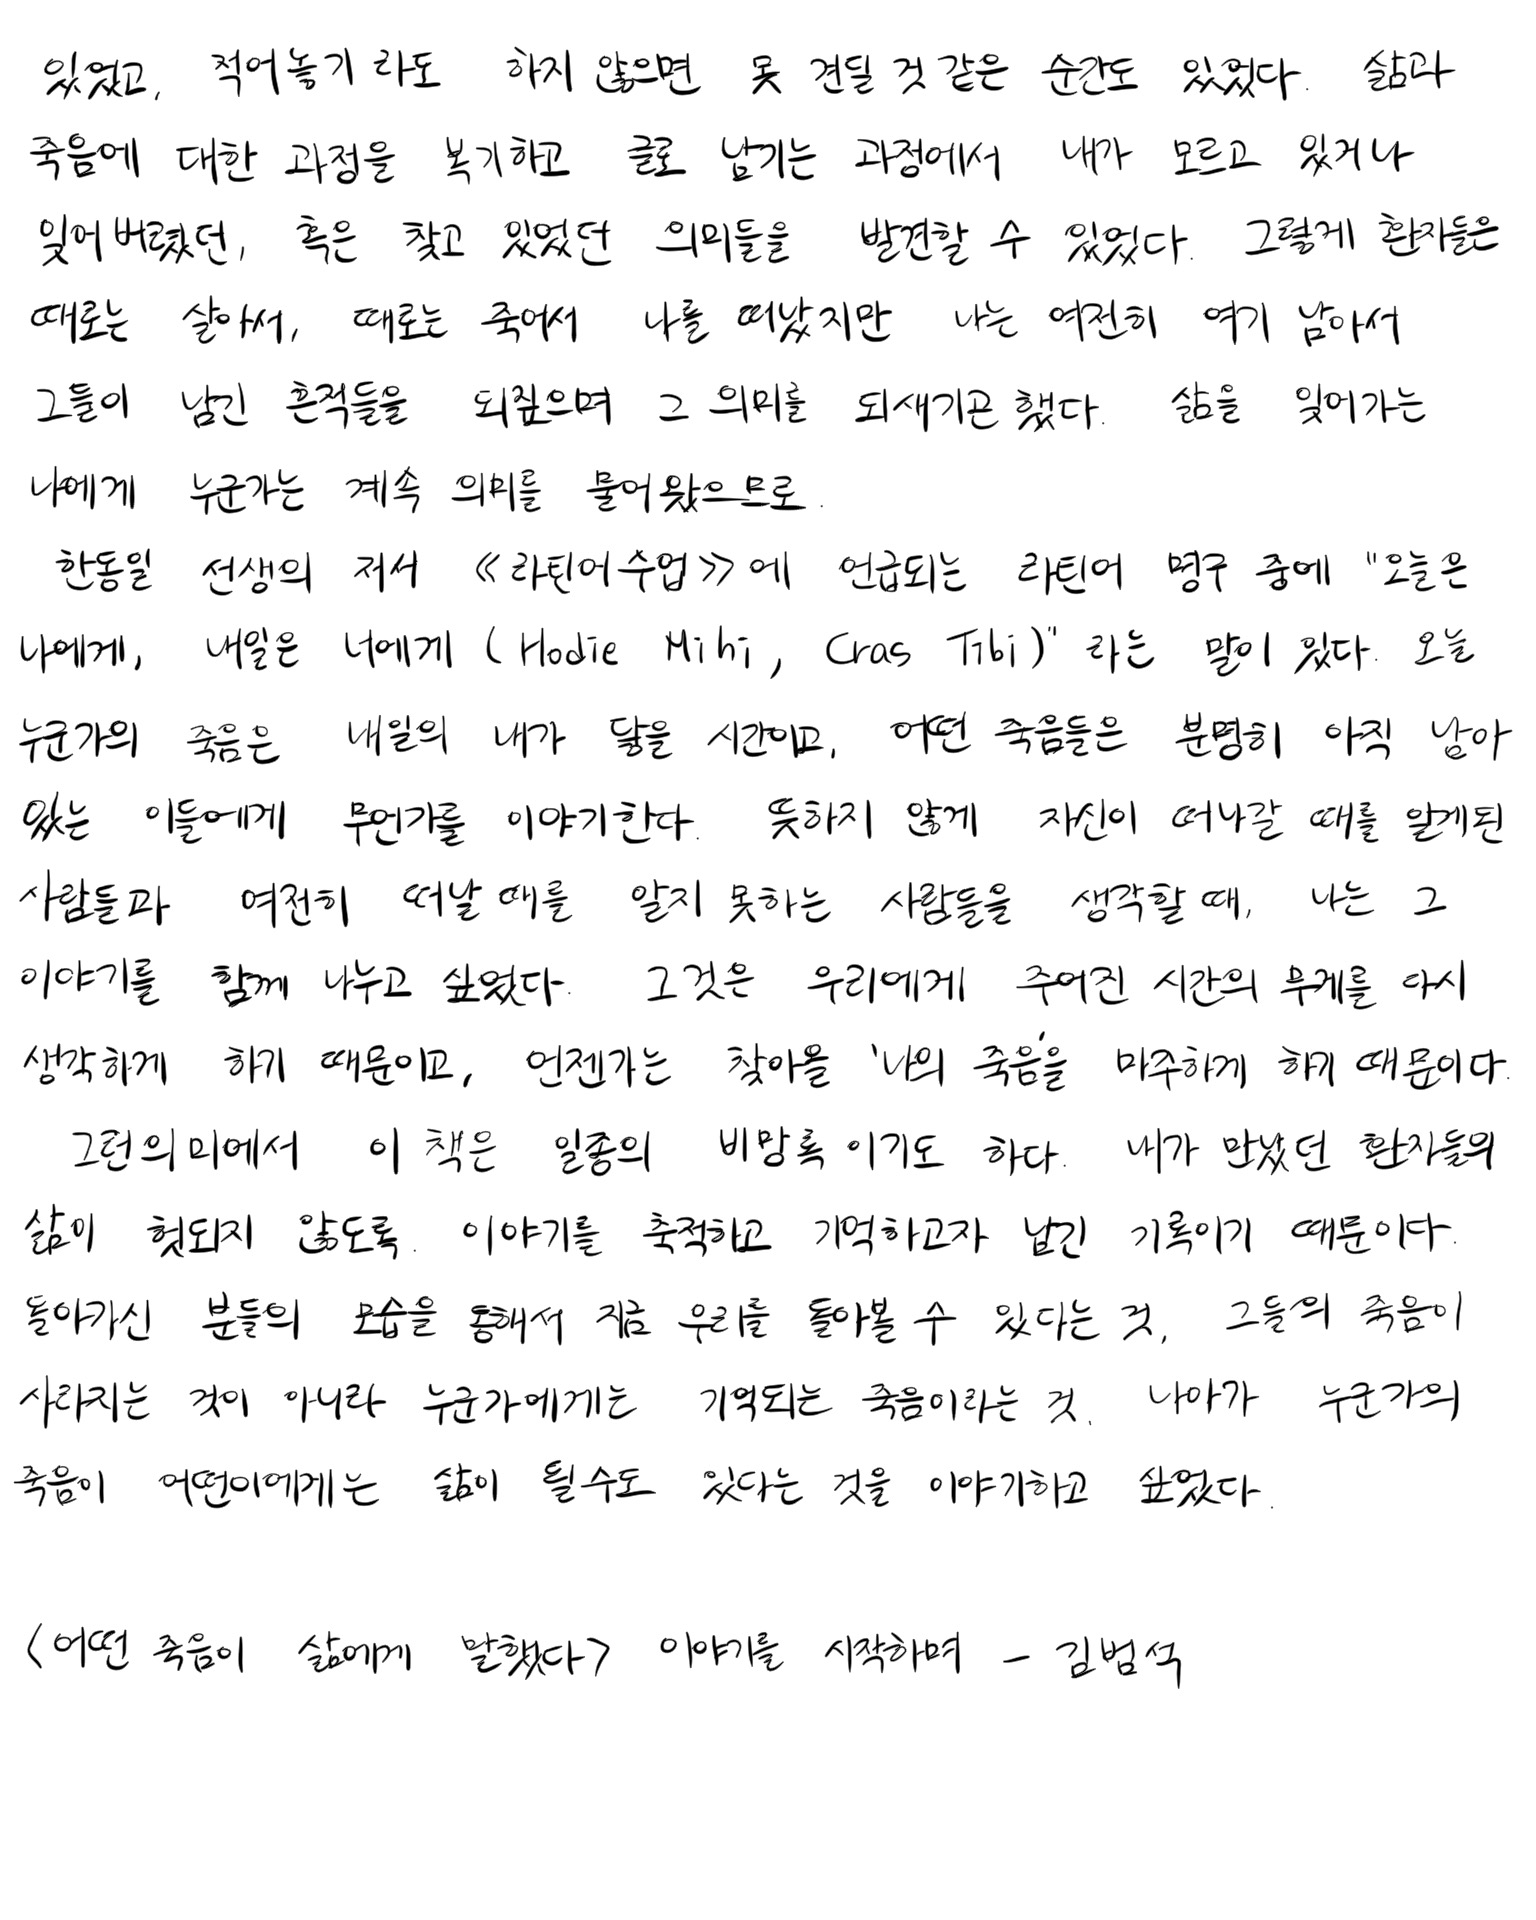 있었고, 적어놓기 라도 하지 않으면 못 견딜 것 같은 순간도 있었다. 삶과
죽음에 대한 과정을 복기하고 글로 남기는 과정에서 내가 모르고 있거나
잊어버렸던, 혹은 찾고 있었던 의미들을 발견할 수 있었다. 그렇게 환자들은
때로는 살아서, 때로는 죽어서 나를 떠났지만 나는 여전히 여기 남아서
그들이 남긴 흔적들을 되짚으며 그 의미를 되새기곤 했다. 삶을 잊어가는
나에게 누군가는 계속 의미를 물어왔으므로.
한동일 선생의 저서 《라틴어수업》에 언급되는 라틴어 명구 중에 "오늘은
나에게, 내일은 너에게 (Hodie Mihi, Cras Tibi)" 라는 말이 있다. 오늘
누군가의 죽음은 내일의 내가 닿을 시간이고, 어떤 죽음들은 분명히 아직 남아
있는 이들에게 무언가를 이야기한다. 뜻하지 않게 자신이 떠나갈 때를 알게된
사람들과 여전히 떠날 때를 알지 못하는 사람들을 생각할 때, 나는 그
이야기를 함께 나누고 싶었다. 그것은 우리에게 주어진 시간의 무게를 다시
생각하게 하기 때문이고, 언젠가는 찾아올 '나의 죽음'을 마주하게 하기 때문이다.
그런의미에서 이 책은 일종의 비망록이기도 하다. 내가 만났던 환자들의
삶이 헛되지 않도록. 이야기를 축적하고 기억하고자 남긴 기록이기 때문이다.
돌아가신 분들의 모습을 통해서 지금 우리를 돌아볼 수 있다는 것, 그들의 죽음이
사라지는 것이 아니라 누군가에게는 기억되는 죽음이라는 것, 나아가 누군가의
죽음이 어떤이에게는 삶이 될수도 있다는 것을 이야기하고 싶었다.
〈어떤 죽음이 삶에게 말했다〉 이야기를 시작하며 - 김범석